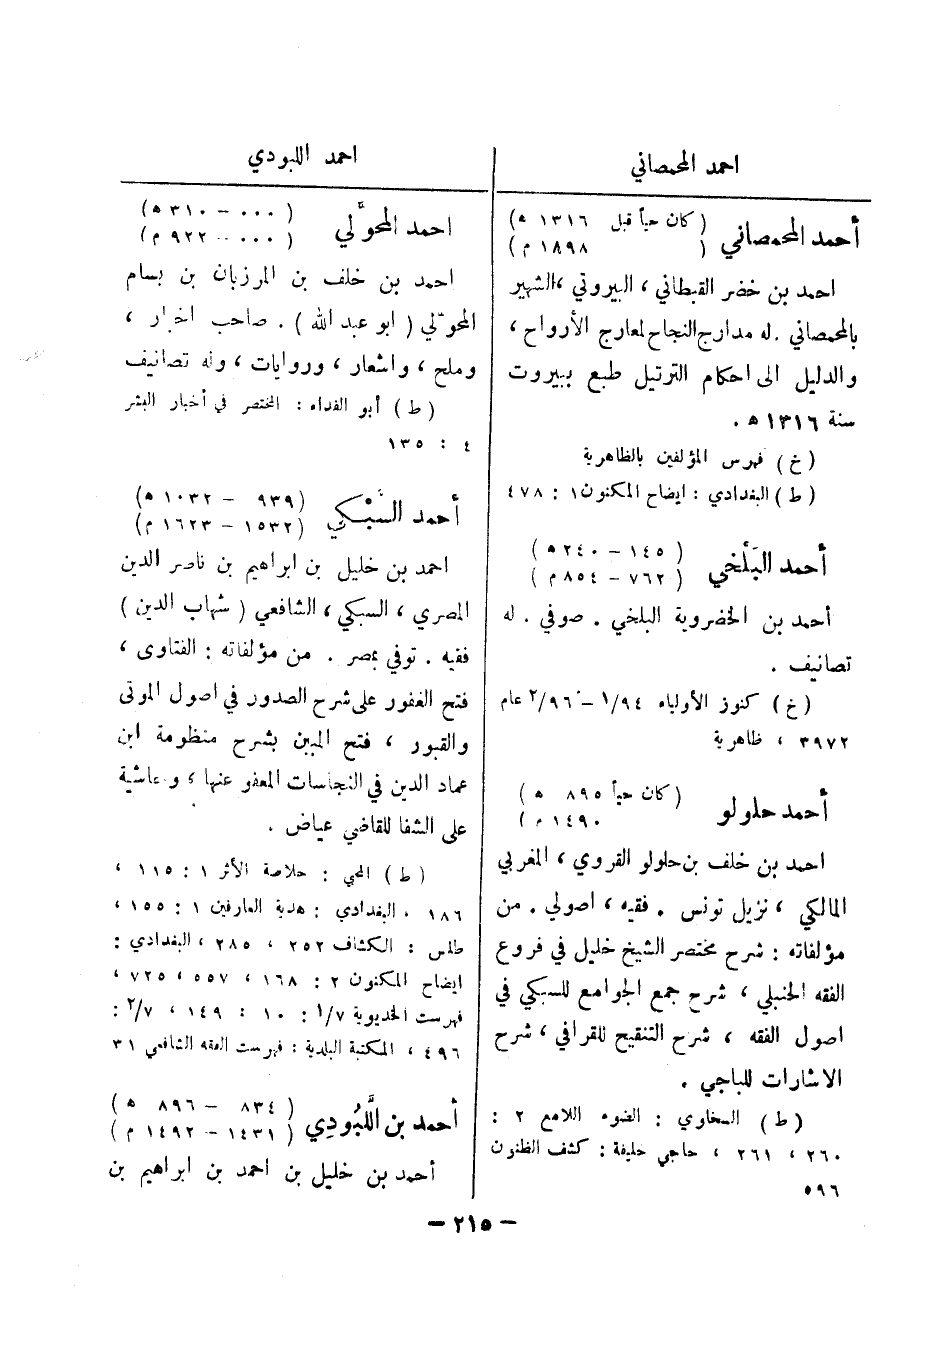 احمد المحمصاني
أحمد المحمصاني (كان حياً قبل ١٣١٦ ه)
( ١٨٩٨ م)
احمد بن خضر القبطاني ، البيروتي ،الشهير
بالمحمصاني . له مدارج النجاح لمعارج الأرواح ،
والدليل الى احكام الترتيل طبع ببيروت
سنة ١٣١٦ ه .
( خ ) فهرس المؤلفين بالظاهرية
( ط ) البغدادي : ايضاح المكنون ١ : ٤٧٨
أحمد البَلْخي ( ١٤٥ – ٢٤٠ ه )
( ٧٦٢ – ٨٥٤ م )
أحمد بن الخضروية البلخي . صوفي . له
تصانيف .
( خ ) كنوز الأولياء ١/٩٤ – ٢/٩٦ عام
٣٩٧٢ ، ظاهرية
أحمد حلولو (كان حياً ٨٩٥ ه )
١٤٩٠ م )
احمد بن خلف بن حلولو القروي ، المغربي
المالكي ، نزيل تونس . فقيه ، اصولي . من
مؤلفاته : شرح مختصر الشيخ خليل في فروع
الفقه الحنبلي ، شرح جمع الجوامع للسبكي في
اصول الفقه ، شرح التنقيح للقرافي ، شرح
الاشارات للباجي .
( ط ) السخاوي : الضوء اللامع ٢ :
٢٦٠ ، ٢٦١ ، حاجي خليفة : كشف الظنون
٥٩٦
احمد اللبودي
احمد المحوَّلي ( ٠٠٠ – ٣١٠ ه )
( ٠٠٠ – ٩٢٢ م )
احمد بن خلف بن المرزبان بن بسام
المحوّلي ( ابو عبد الله ) . صاحب اخبار ،
وملح ، واشعار ، وروايات ، وله تصانيف
( ط ) أبو الفداء : المختصر في أخبار البشر
٤ : ١٣٥
أحمد السُّبْكي (٩٣٩ – ١٠٣٢ ه )
(١٥٣٢ – ١٦٢٣ م )
احمد بن خليل بن ابراهيم بن ناصر الدين
المصري ، السبكي ، الشافعي ( شهاب الدين )
فقيه . توفي بمصر . من مؤلفاته : الفتاوى ،
فتح الغفور على شرح الصدور في اصول الموتى
والقبور ، فتح المبين بشرح منظومة ابن
عماد الدين في النجاسات المعفو عنها ، وحاشية
على الشفا للقاضي عياض .
( ط ) المحبي : خلاصة الأثر ١ : ١١٥ ،
١٨٦ . البغدادي : هدية العارفين ١ : ١٥٥ ،
طلس : الكشاف ٢٥٢ ، ٢٨٥ ، البغدادي :
ايضاح المكنون ٢ : ١٦٨ ، ٥٥٧ ، ٧٢٥ ،
فهرست الخديوية ١/٧ : ١٠ : ١٤٩ ، ٢/٧ :
٤٩٦ ، المكتبة البلدية : فهرست الفقه الشافعي ٣١
أحمد بن اللَّبُودي ( ٨٣٤ – ٨٩٦ ه )
( ١٤٣١ – ١٤٩٢ م )
أحمد بن خليل بن احمد بن ابراهيم بن
– ٢١٥ –